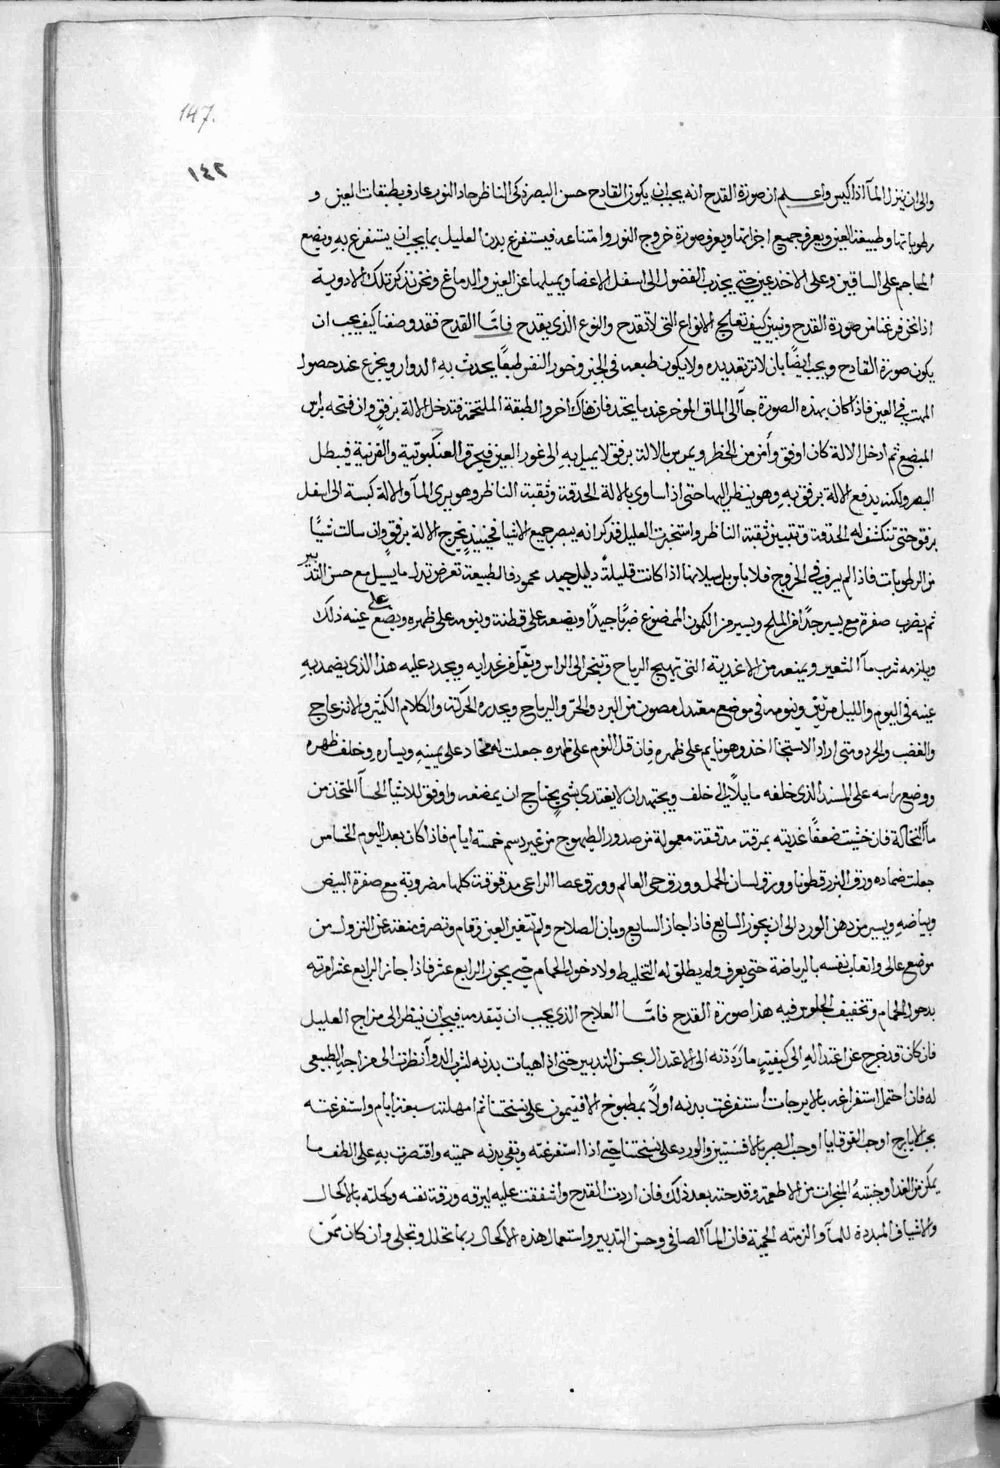 147.
١٤٢
والى ان ينزل الماء اذا كبس واعلم ان صورة القدح انه يجب ان يكون القادح حسن البصر ذكى الناظر حاد النور عارف بطبقات العين و
رطوباتها وطبيعة العين ويعرف جميع اجزائها ويعرف صورة خروج النور وامتناعه فيستفرغ بدن العليل بما يجب ان يستفرغ به ويضع
المحاجم على الساقين وعلى الاخدعين حتى يجذب الفضول الى اسفل الاعضا ويميلها عن العين والدماغ ونحن نذكر تلك الادوية
اذا نحن فرغنا من صورة القدح ونبين كيف تعالج الانواع التى لا تقدح والنوع الذى يقدح فامّا القدح فقد وصفنا كيف يجب ان
يكون صورة القادح ويجب ايضًا بان لا ترتعد يده ولا يكون طبعه فى الجبن وخور النفس طبعًا يحدث به الدوار ويجزع عند حصول
المهت فى العين فاذا كان بهذه الصورة جاء الى الماق الموخر عند ما يتحد فان هناك اخر والطبقة الملتحمة فتدخل الالة برفق وان فتحه براس
المبضع ثم ادخل الالة كان اوفق وأمن من الخطر ويمر بالالة برفق لا يميل به الى غور العين فيخرق العنكبوتية والقرنية فيبطل
البصر ولكنه يدفع الالة برفق به وهو ينظر اليها حتى اذا ساوى بالالة الحدقة وثقبة الناظر وهو يرى الماء والالة كبسة الى اسفل
برفق حتى تنكشف له الحدقة وتتبين ثقبة الناظر واستخبرت العليل فذكر انه يبصر جميع الاشيا فحينيذٍ يخرج الالة برفق وان سالت شيًا
من الرطوبات فاذا لم يسرف فى الخروج فلا باس بل سيلانها اذا كانت قليلة دليل جيد محمود فالطبيعة تعرض بدل ما يسيل مع حسن التدبير
ثم يضرب صفرة مع يسير جدًا من الملح ويسير من الكمون الممضوغ ضربًا جيدًا ويضعه على قطنة وينومه على ظهره ويضع على عينه ذلك
ويلزمه شرب ماء الشعير ويمنعه من الاغدية التى تهيج الرياح وتبخر الى الراس ويقلّل من غدايه ويجدد عليه هذا الذى يضمد به
عينه فى اليوم والليل مرتين وينومه فى موضع معتدل مصون من البرد والحر والرياح ويحدره الحركة والكلام الكثير والانزعاج
والغضب والحرد ومتى اراد الاستنجا اخذ وهو نايم على ظهره فان قل النوم على ظهره جعلت له مخاد على يمينه ويساره وخلف ظهره
ووضع راسه على المسند الذى خلفه مايلًا الى خلف ويجتهد ان لا يغتدى بشى يحتاج ان يمضغه واوفق للاشيا الحسا المتخذ من
ماء النخالة فان خشيت ضعفًا غديته بمرقة مدققة معمولة من صدور الطيهوج من غير دسم خمسة ايام فاذا كان بعد اليوم الخامس
جعلت ضماده ورق البزرقطونا وورق لسان الحمل وورق حى العالم وورق عصا الراعى مدقوقة كلها مضروبة مع صفرة البيض
وبياضه ويسير من دهن الورد الى ان يجوز السابع فاذا جاز السابع وبان الصلاح ولم تتغير العين وقام وتصرف منعته عن النزول من
موضع عالى واتعاب نفسه بالرياضة حتى يعرق ولم يطلق له التخليط ولا دخول الحمام حتى يجوز الرابع عشر فاذا جاز الرابع عشر امرته
بدخول الحمام وتخفيف الجلوس فيه هذا صورة القدح فامّا العلاج الذى يجب ان تتقدمه فيجب ان ينظر الى مزاج العليل
فان كان قد خرج عن اعتداله الى كيفيته ما رَدَدته الى الاعتدال بحسن التدبير حتى اذا هيات بدنه لشرب الدوا نظرت الى مزاجه الطبيعى
له فان احتمل استفراغه بالايرجات استفرغت بدنه اولًا بمطبوخ الافتيمون على نسختنا ثم امهلته سبعة ايام واستفرغته
بحب الايارج او حب القوقايا او حب الصبر بالافسنتين والورد على نسختنا حتى اذا استفرغته ونقى بدنه حميته واقتصرت به على الطف ما
يمكن من الغدا وجنبتهُ المبخرات من الاطعمة وقدحته بعد ذلك فان اردت القدح واشفقت عليه لبرقه ورقة نفسه وكحلته بالاكحال
والاشياف المبددة للماء والزمته الحمية فان الماء الصافى وحسن التدبير واستعمال هذه الاكحال ربما تحلل وتجلى وان كان ممّن